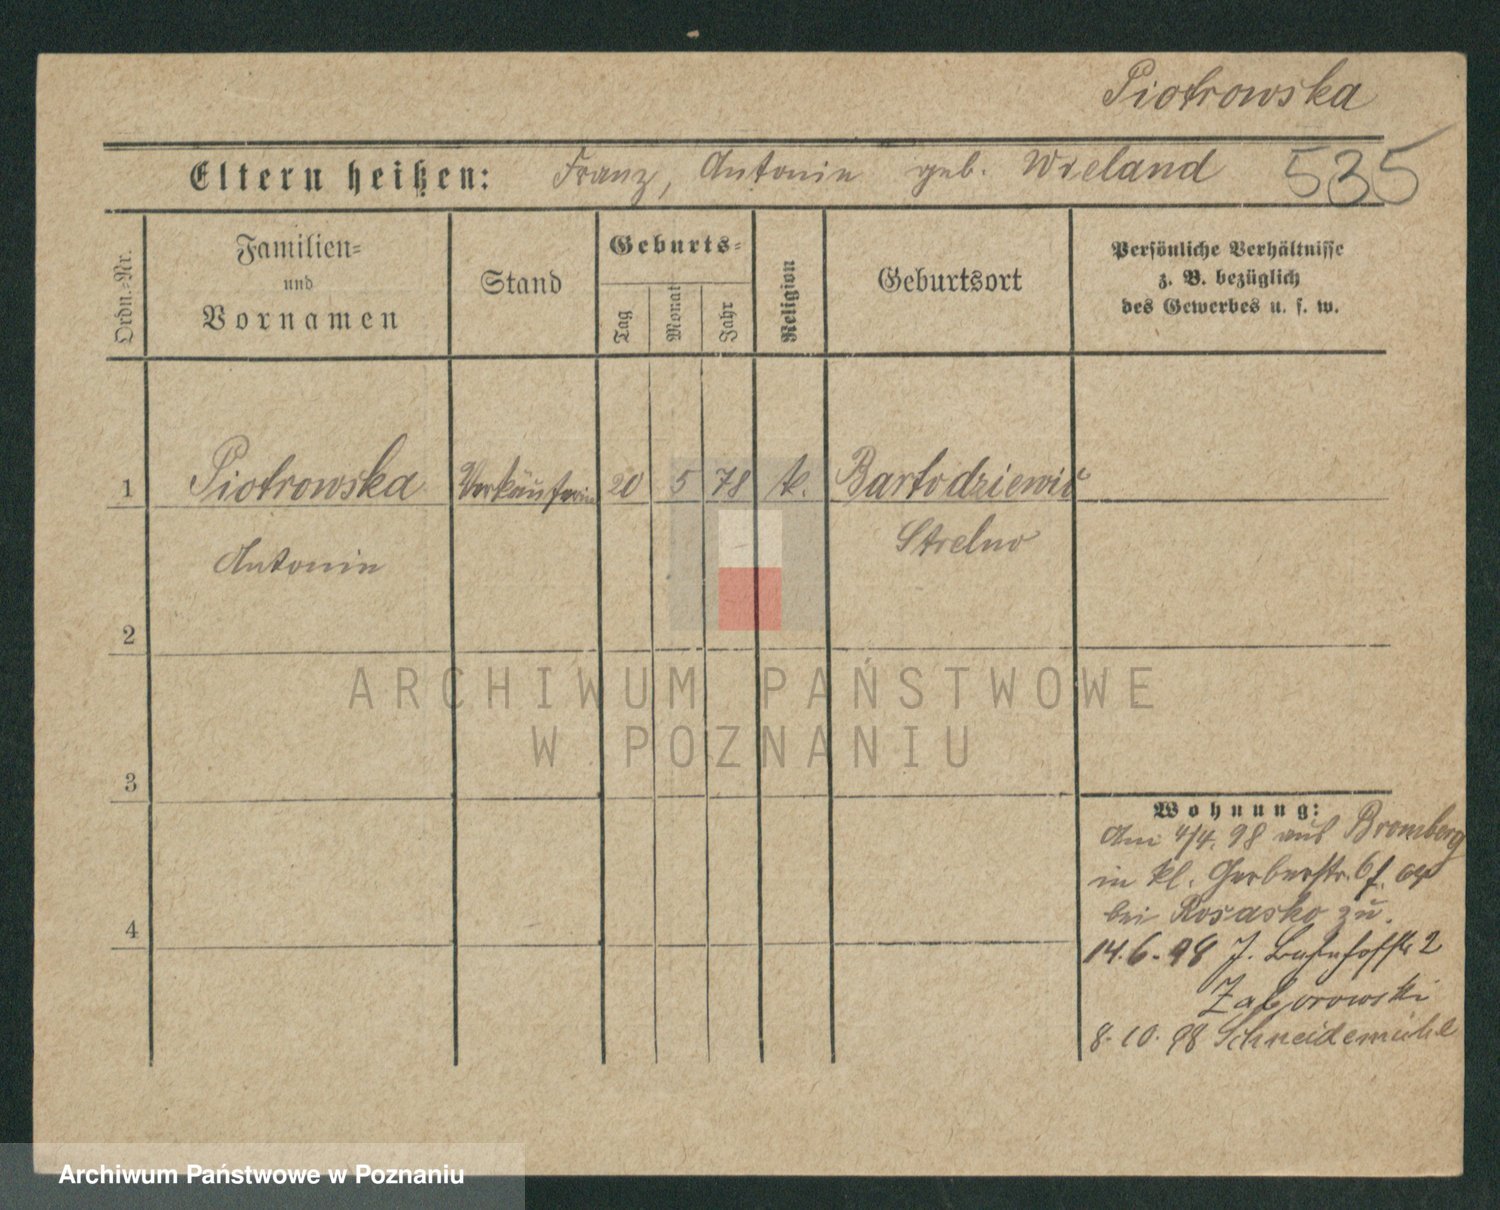 Piotrowska
Eltern heißen: Franz, Antonie geb. Wieland 535
Ordn.-Nr.
Familien-
und
Vornamen
Stand
Geburts-
Tag
Monat
Jahr
Religion
Geburtsort
Persönliche Verhältnisse
z. B. bezüglich
des Gewerbes u. s. w.
1 Piotrowska Verkäuferin 20 5 78 k. Bartodziewic
Strelno
Antonie
2
3
4
Wohnung:
Am 4/4. 98 aus Bromberg
in kl. Gerberstr. 6
bei Rosasko zu.
14.6.98 J. Bahnhofstr 2
Zaborowski
8.10.98 Schneidemühl
ARCHIWUM PAŃSTWOWE
W POZNANIU
Archiwum Państwowe w Poznaniu